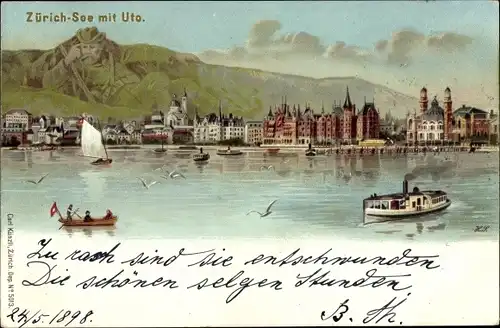 Zürich-See mit Uto.
Zu rasch sind sie entschwunden
Die schönen selgen Stunden
24/5. 1898. B. Th.
Carl Künzli, Zürich. Dep. No 5013.